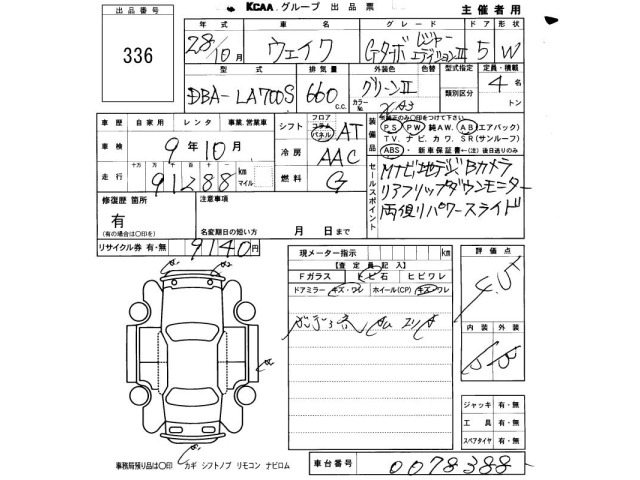 出品番号
336
KCAA グループ 出品票
主催者用
年式 車名 グレード ドア 形状
28/10月 ウェイク Gターボ レジャーエディションⅢ 5 W
型式 排気量 外装色 色替 型式指定 定員・積載
DBA-LA700S 660 c.c. グリーンⅡ カラーNo. 類別区分 4名 トン
車歴 自家用 レンタ 事業.営業車
シフト フロア コラム パネル AT
装備品 ※純正のみ○印をつけて下さい。
PS PW 純AW. AB(エアバック)
T.V. ナビ. カワ. SR(サンルーフ)
ABS ・新車保証書←(注)後日送りのみ
車検 9年10月
冷房 AAC
走行 十万 万 千 百 十 一 91288 km マイル
燃料 G
セールスポイント
Mナビ地デジBカメラ
リアフリップダウンモニター
両側リパワースライド
修復歴 箇所
有
(有の場合は○印を)
注意事項
名変期日の短い方 月 日まで
リサイクル券 有・無 9140円
現メーター指示 km
【査定員記入】
Fガラス ヒビ石 ヒビワレ
ドアミラー キズ・ワレ ホイール(CP) キズ・ワレ
評価点
4.5
内装 外装
ジャッキ 有・無
工具 有・無
スペアタイヤ 有・無
事務局預り品は○印 カギ シフトノブ リモコン ナビロム
車台番号 0078388